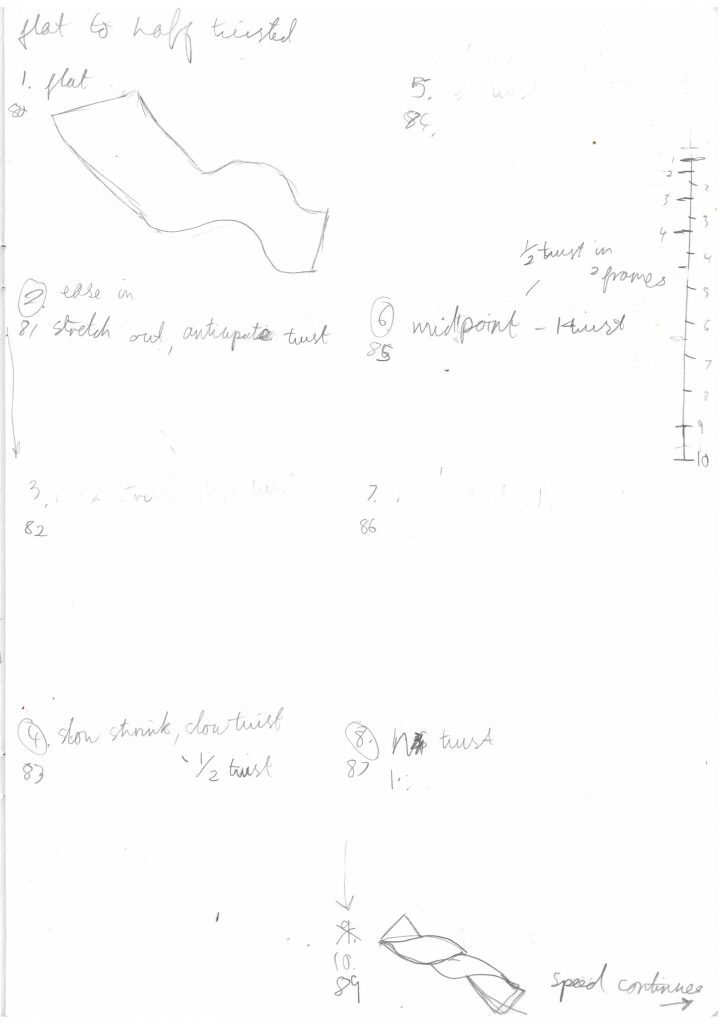 flat to half twisted
1. flat
80
2. ease in
81 stretch out, anticipate twist
3.
82
4. slow shrink, slow twist
83 1/2 twist
5.
84.
1/2 twist in
2 frames
6 midpoint - 1 twist
85
7.
86
8. twist
87
10.
89
speed continues
1
2
3
4
2
3
4
5
6
7
8
9
10